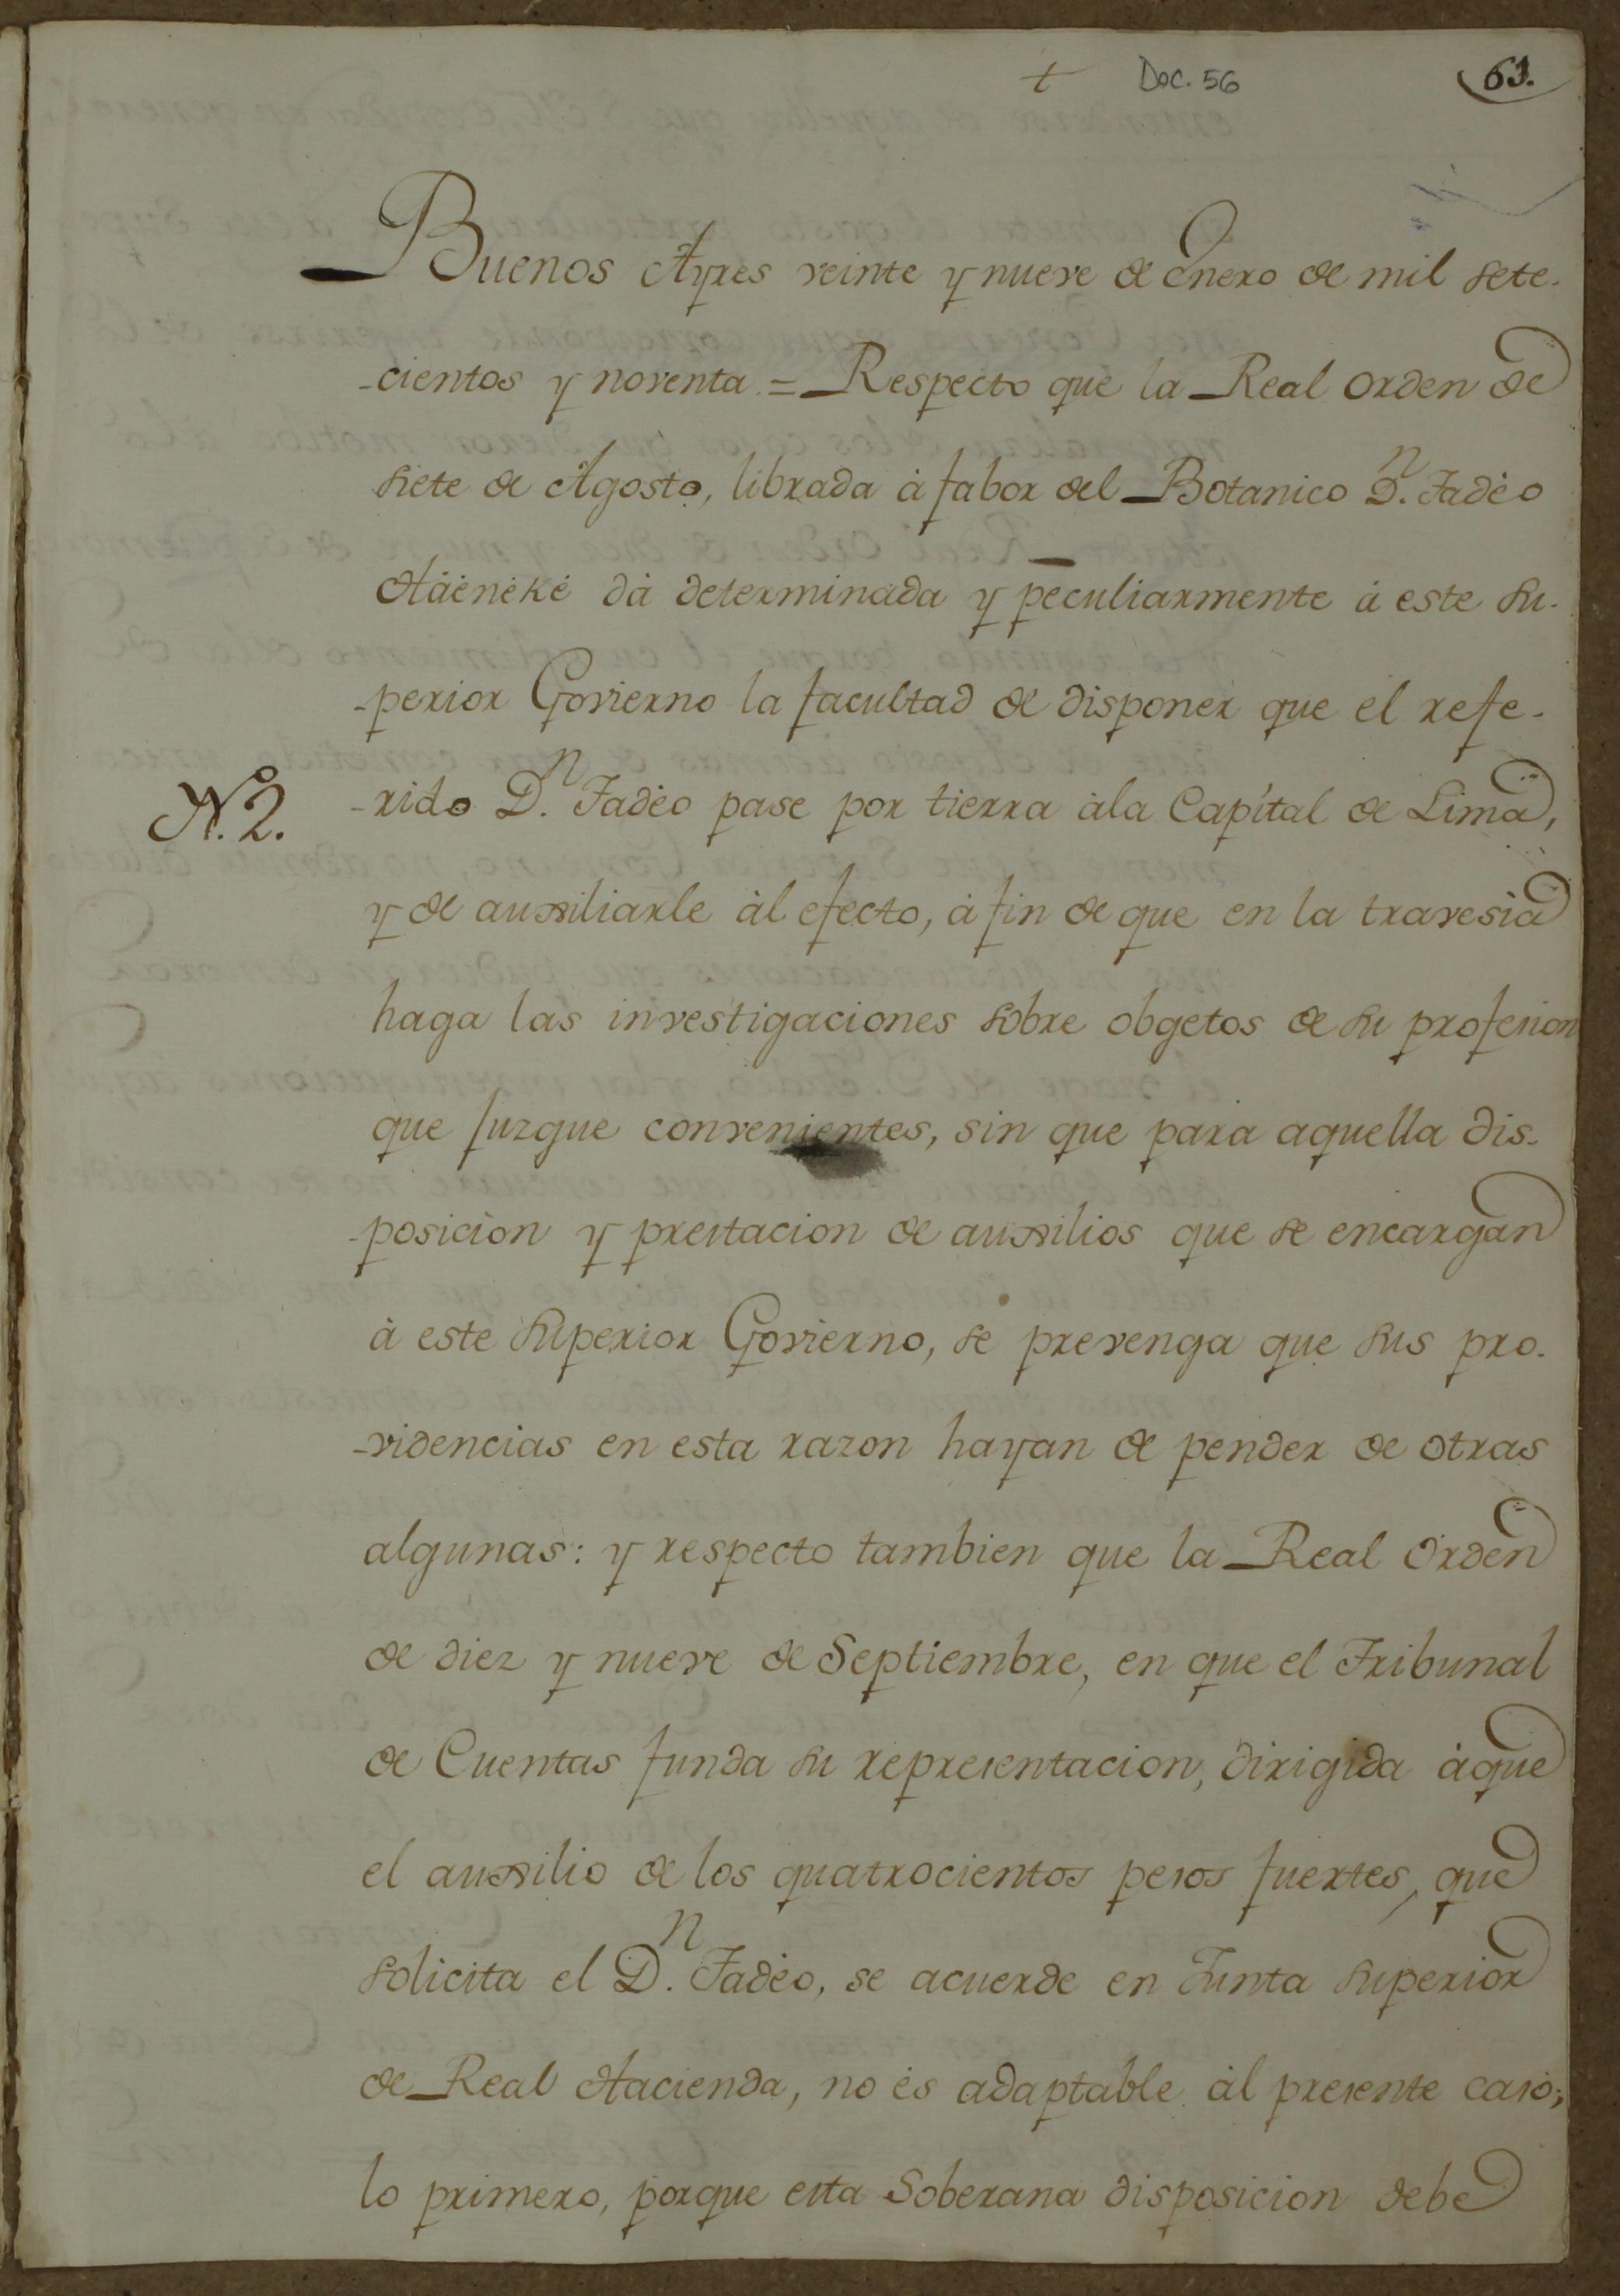 t Doc. 56 61.
Buenos Ayres veinte y nueve de Enero de mil sete-
-cientos y noventa. = Respecto que la Real orden de
siete de Agosto, librada à fabor del Botanico D.n Tadèo
Häènèké dà determinada y peculiarmente à este Su-
-perior Govierno la facultad de disponer que el refe-
N.º 2.
-rido D.n Tadèo pase por tierra àla Capital de Lima,
y de auxiliarle àl efecto, à fin de que en la travesia
haga las investigaciones sobre obgetos de su profesion
que juzgue convenientes, sin que para aquella dis-
-posicion y prestacion de auxilios que se encargan
à este Superior Govierno, se prevenga que sus pro-
-videncias en esta razon hayan de pender de otras
algunas: y respecto tambien que la Real Orden
de diez y nueve de Septiembre, en que el Tribunal
de Cuentas funda su representacion, dirigida àque
el auxilio de los quatrocientos pesos fuertes, que
solicita el D.n Tadèo, se acuerde en Junta Superior
de Real Hacienda, no ès adaptable àl presente caso;
lo primero, porque esta Soberana disposicion debe